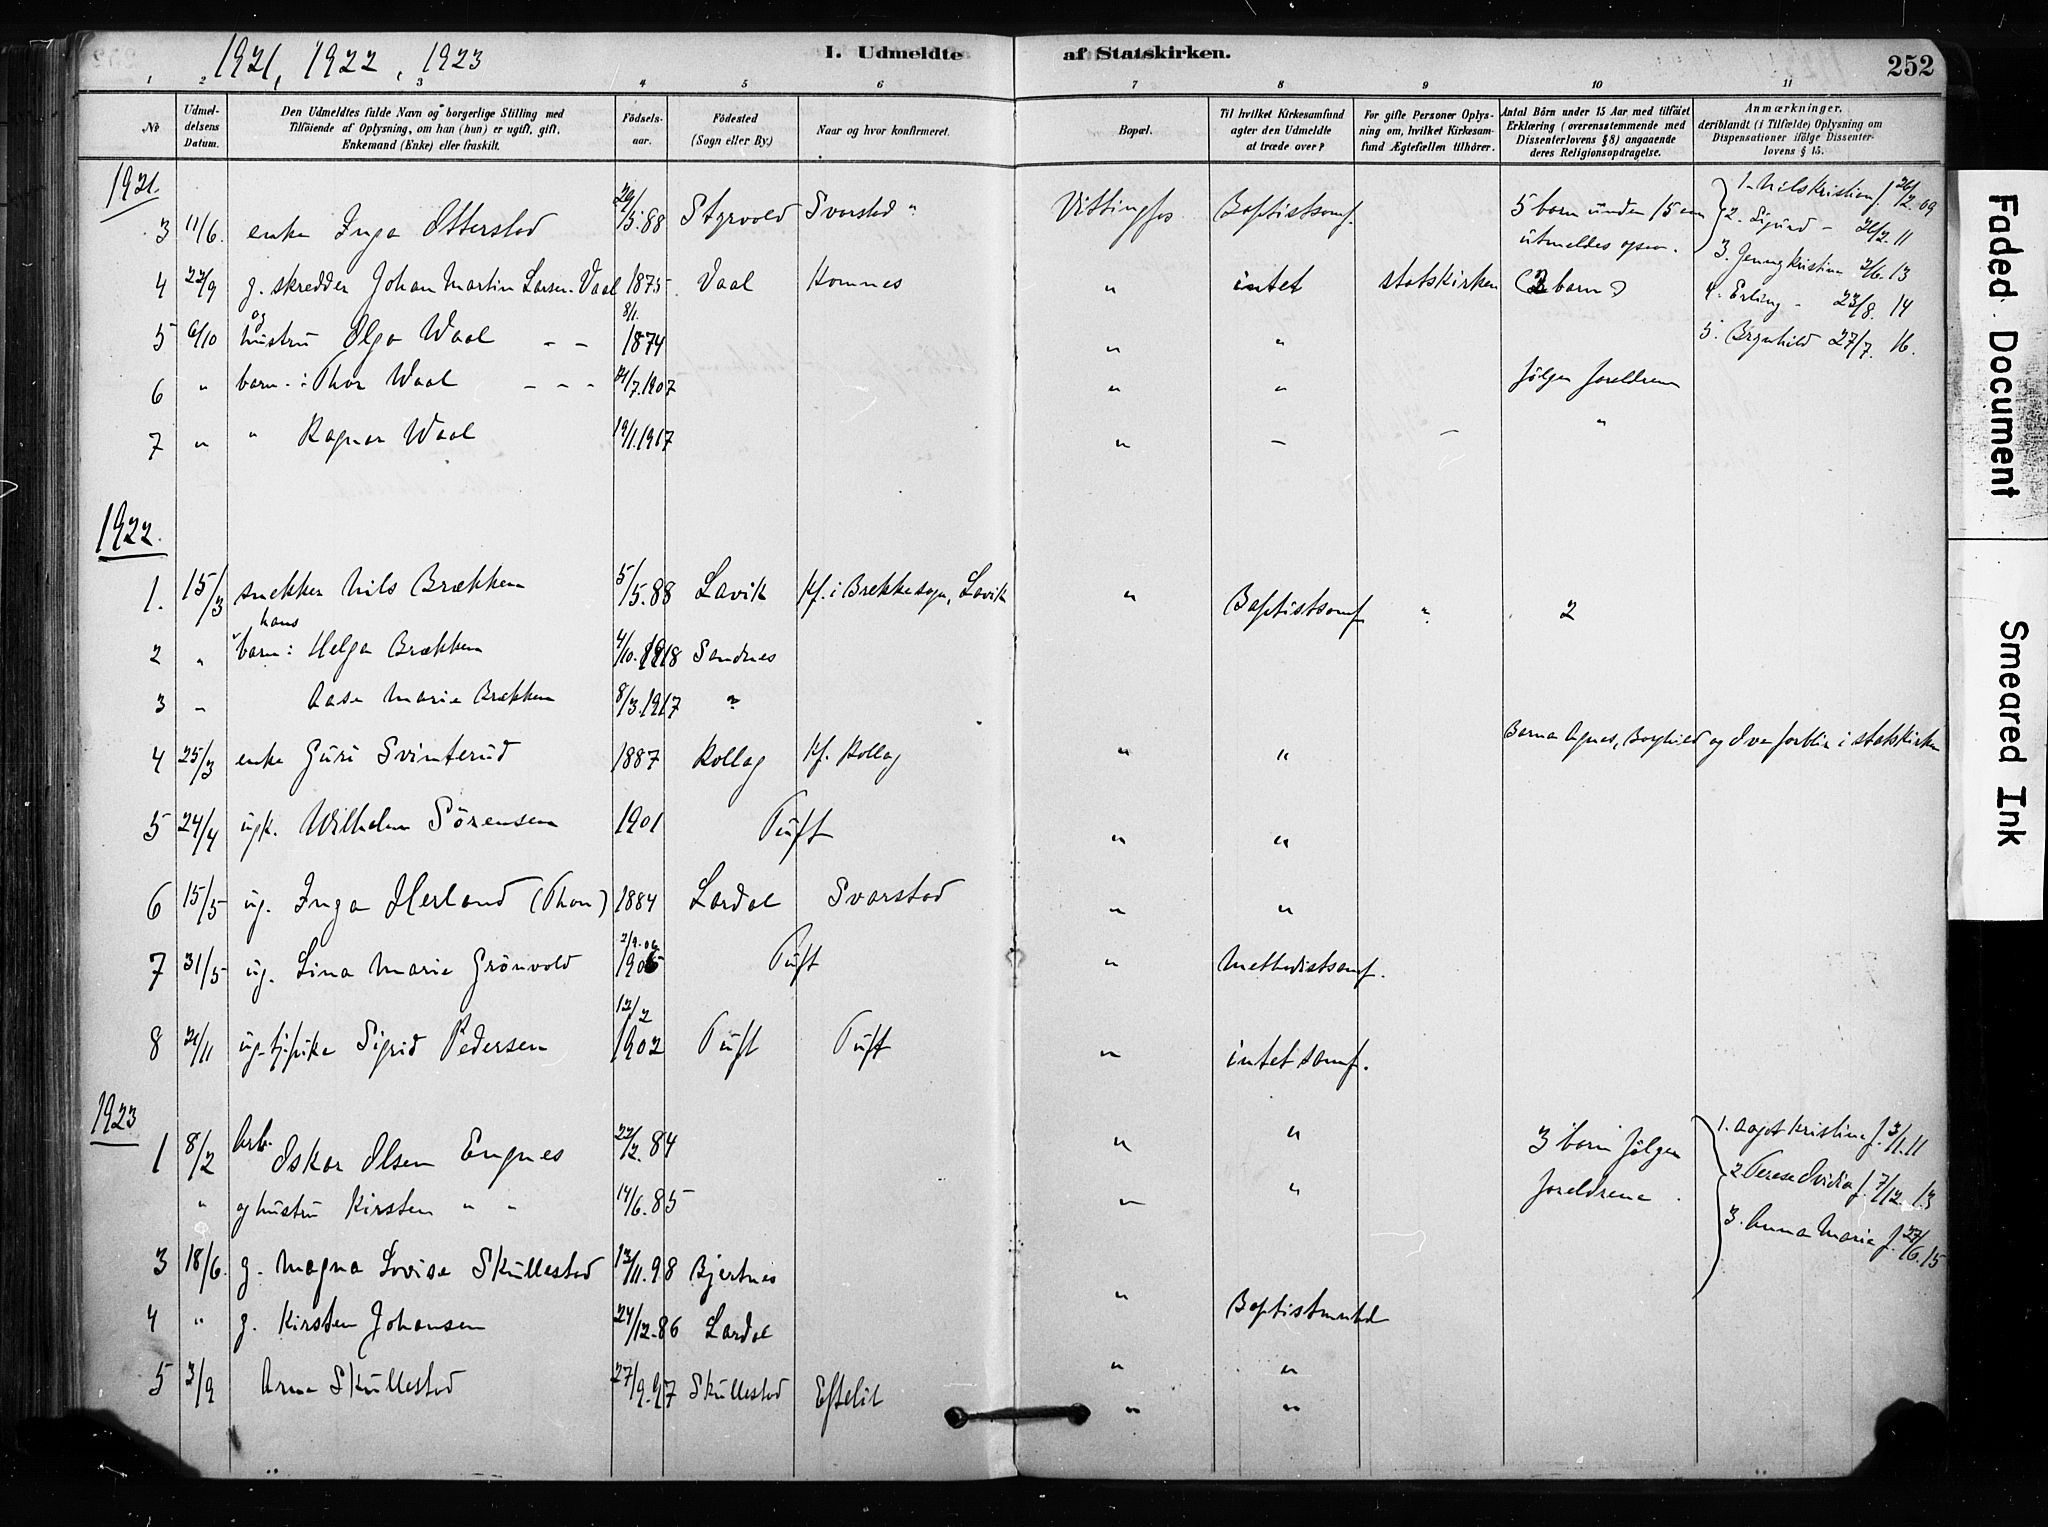 1921, 1922, 1923
I. Udmeldte af Statskirken.
252
1 2 3 4 5 6 7 8 9 10 11
No
Udmeldelsens Datum.
Den Udmeldtes fulde Navn og borgerlige Stilling med Tilföiende af Oplysning, om han (hun) er ugift, gift, Enkemand (Enke) eller fraskilt.
Födselsaar.
Födested (Sogn eller By.)
Naar og hvor konfirmeret.
Bopæl.
Til hvilket Kirkesamfund agter den Udmeldte at træde over?
For gifte Personer Oplysning om, hvilket Kirkesamfund Ægtefællen tilhörer.
Antal Börn under 15 Aar med tilföiet Erklæring (overensstemmende med Dissenterlovens § 8) angaaende deres Religionsopdragelse.
Anmærkninger, deriblandt (i Tilfælde) Oplysning om Dispensationer ifölge Dissenterlovens § 15.
1921.
3 11/6. enke Inga Otterstad 29/5.88 Styrvold Svarstad " Vittingfos Baptistsamf. 5 barn under 15 aar utmeldes ogsaa.
1. Nils Kristian f. 26/2.09
2. Sigurd - 26/2.11
3. Jenny Kristine 2/6.13
4. Erling - 23/8.14
5. Brynhild 27/7.16.
4 22/9 g. skredder Johan Martin Larsen Vaal 1875 Vaal Komnes " intet statskirken (2 barn)
5 6/10 og hustru Olga Waal - - 8/1. 1874 " "
6 " barn: Thor Waal - - - 21/7.1907 " " følger foreldrene
7 " " Ragnar Waal 19/1.1917 " - - "
1922.
1. 15/3 snekker Nils Brækken 5/5.88 Lavik Kf. i Brekke sogn, Lavik " Baptistsamf. " 2
2 " hans barn: Helga Brækken 4/10.1918 Sandnes
3 - Aase Marie Brækken 8/3.1917 "
4 25/3 enke Guri Svinterud 1887 Rollag Kf. Rollag " " Barna Agnes, Borghild og Eva forblir i statskirken
5 24/4 ugk. Wilhelm Sörensen 1901 Tuft " "
6 15/5 ug. Inga Herland (Thon) 1884 Lardal Svarstad " "
7 31/5 ug. Lina Marie Grönvold 2/9.06 1906 Tuft " Methodistsamf.
8 21/11 ug. tj.pike Sigrid Pedersen 12/2 1902 Tuft Tuft " intet samf.
1923
1 8/2 Arb. Oskar Olsen Engnes 22/2.84 " " 3 barn følger foreldrene.
1. Aagot Kristine f. 3/1.11
2. Terese Ovidia f. 7/12.13
3. Anna Marie f. 27/6.15
" og hustru Kirsten " " 14/6.85 - "
3 18/6. g. Magna Lovise Skullestad 13/11.98 Bjertnes " Baptistmenighed
4 " g. Kirsten Johansen 24/12.86 Lardal " "
5 3/9 Arna Skullestad 27/9.97 Skullestad Efteløt " "
Faded Document
Smeared Ink